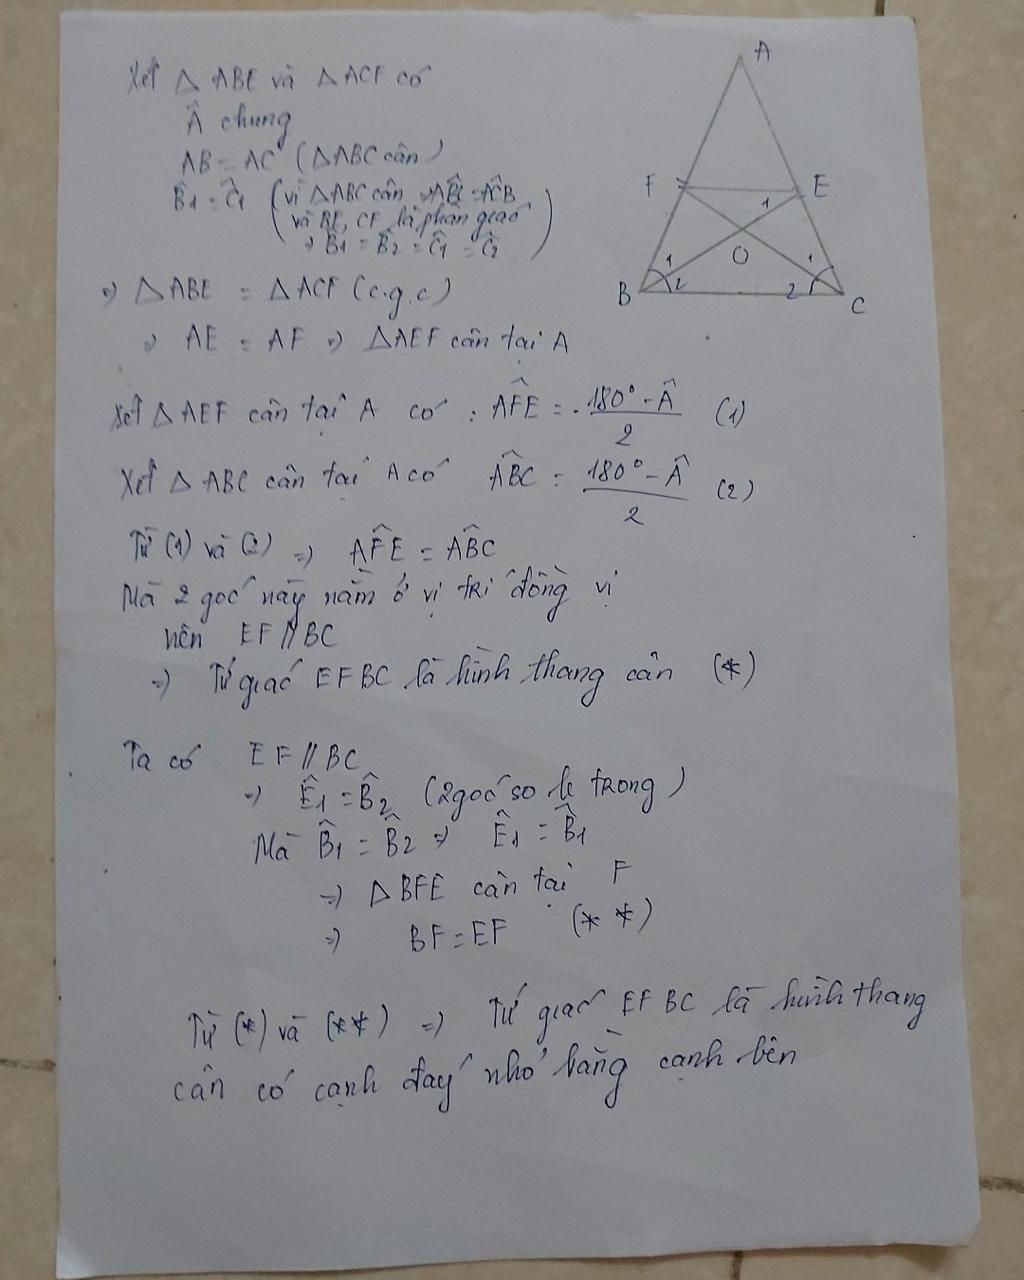 Xét △ ABE và △ ACF có
Â chung
AB = AC (△ABC cân)
B̂1 = Ĉ1 (vì △ABC cân ⇒ AB̂C = AĈB
và BE, CF là phân giác
⇒ B̂1 = B̂2 = Ĉ1 = Ĉ2)
⇒ △ABE = △ACF (c.g.c)
⇒ AE = AF ⇒ △AEF cân tại A
Xét △AEF cân tại A có : AF̂E = (180° - Â)/2 (1)
Xét △ ABC cân tại A có AB̂C = (180° - Â)/2 (2)
Từ (1) và (2) ⇒ AF̂E = AB̂C
Mà 2 góc này nằm ở vị trí đồng vị
nên EF // BC
⇒ Tứ giác EFBC là hình thang cân (*)
Ta có EF // BC
⇒ Ê1 = B̂2 (2 góc so le trong)
Mà B̂1 = B̂2 ⇒ Ê1 = B̂1
⇒ △BFE cân tại F
⇒ BF = EF (* *)
Từ (*) và (**) ⇒ Tứ giác EFBC là hình thang
cân có cạnh đáy nhỏ bằng cạnh bên
A
F
E
1
O
1
1
B
2
2
C